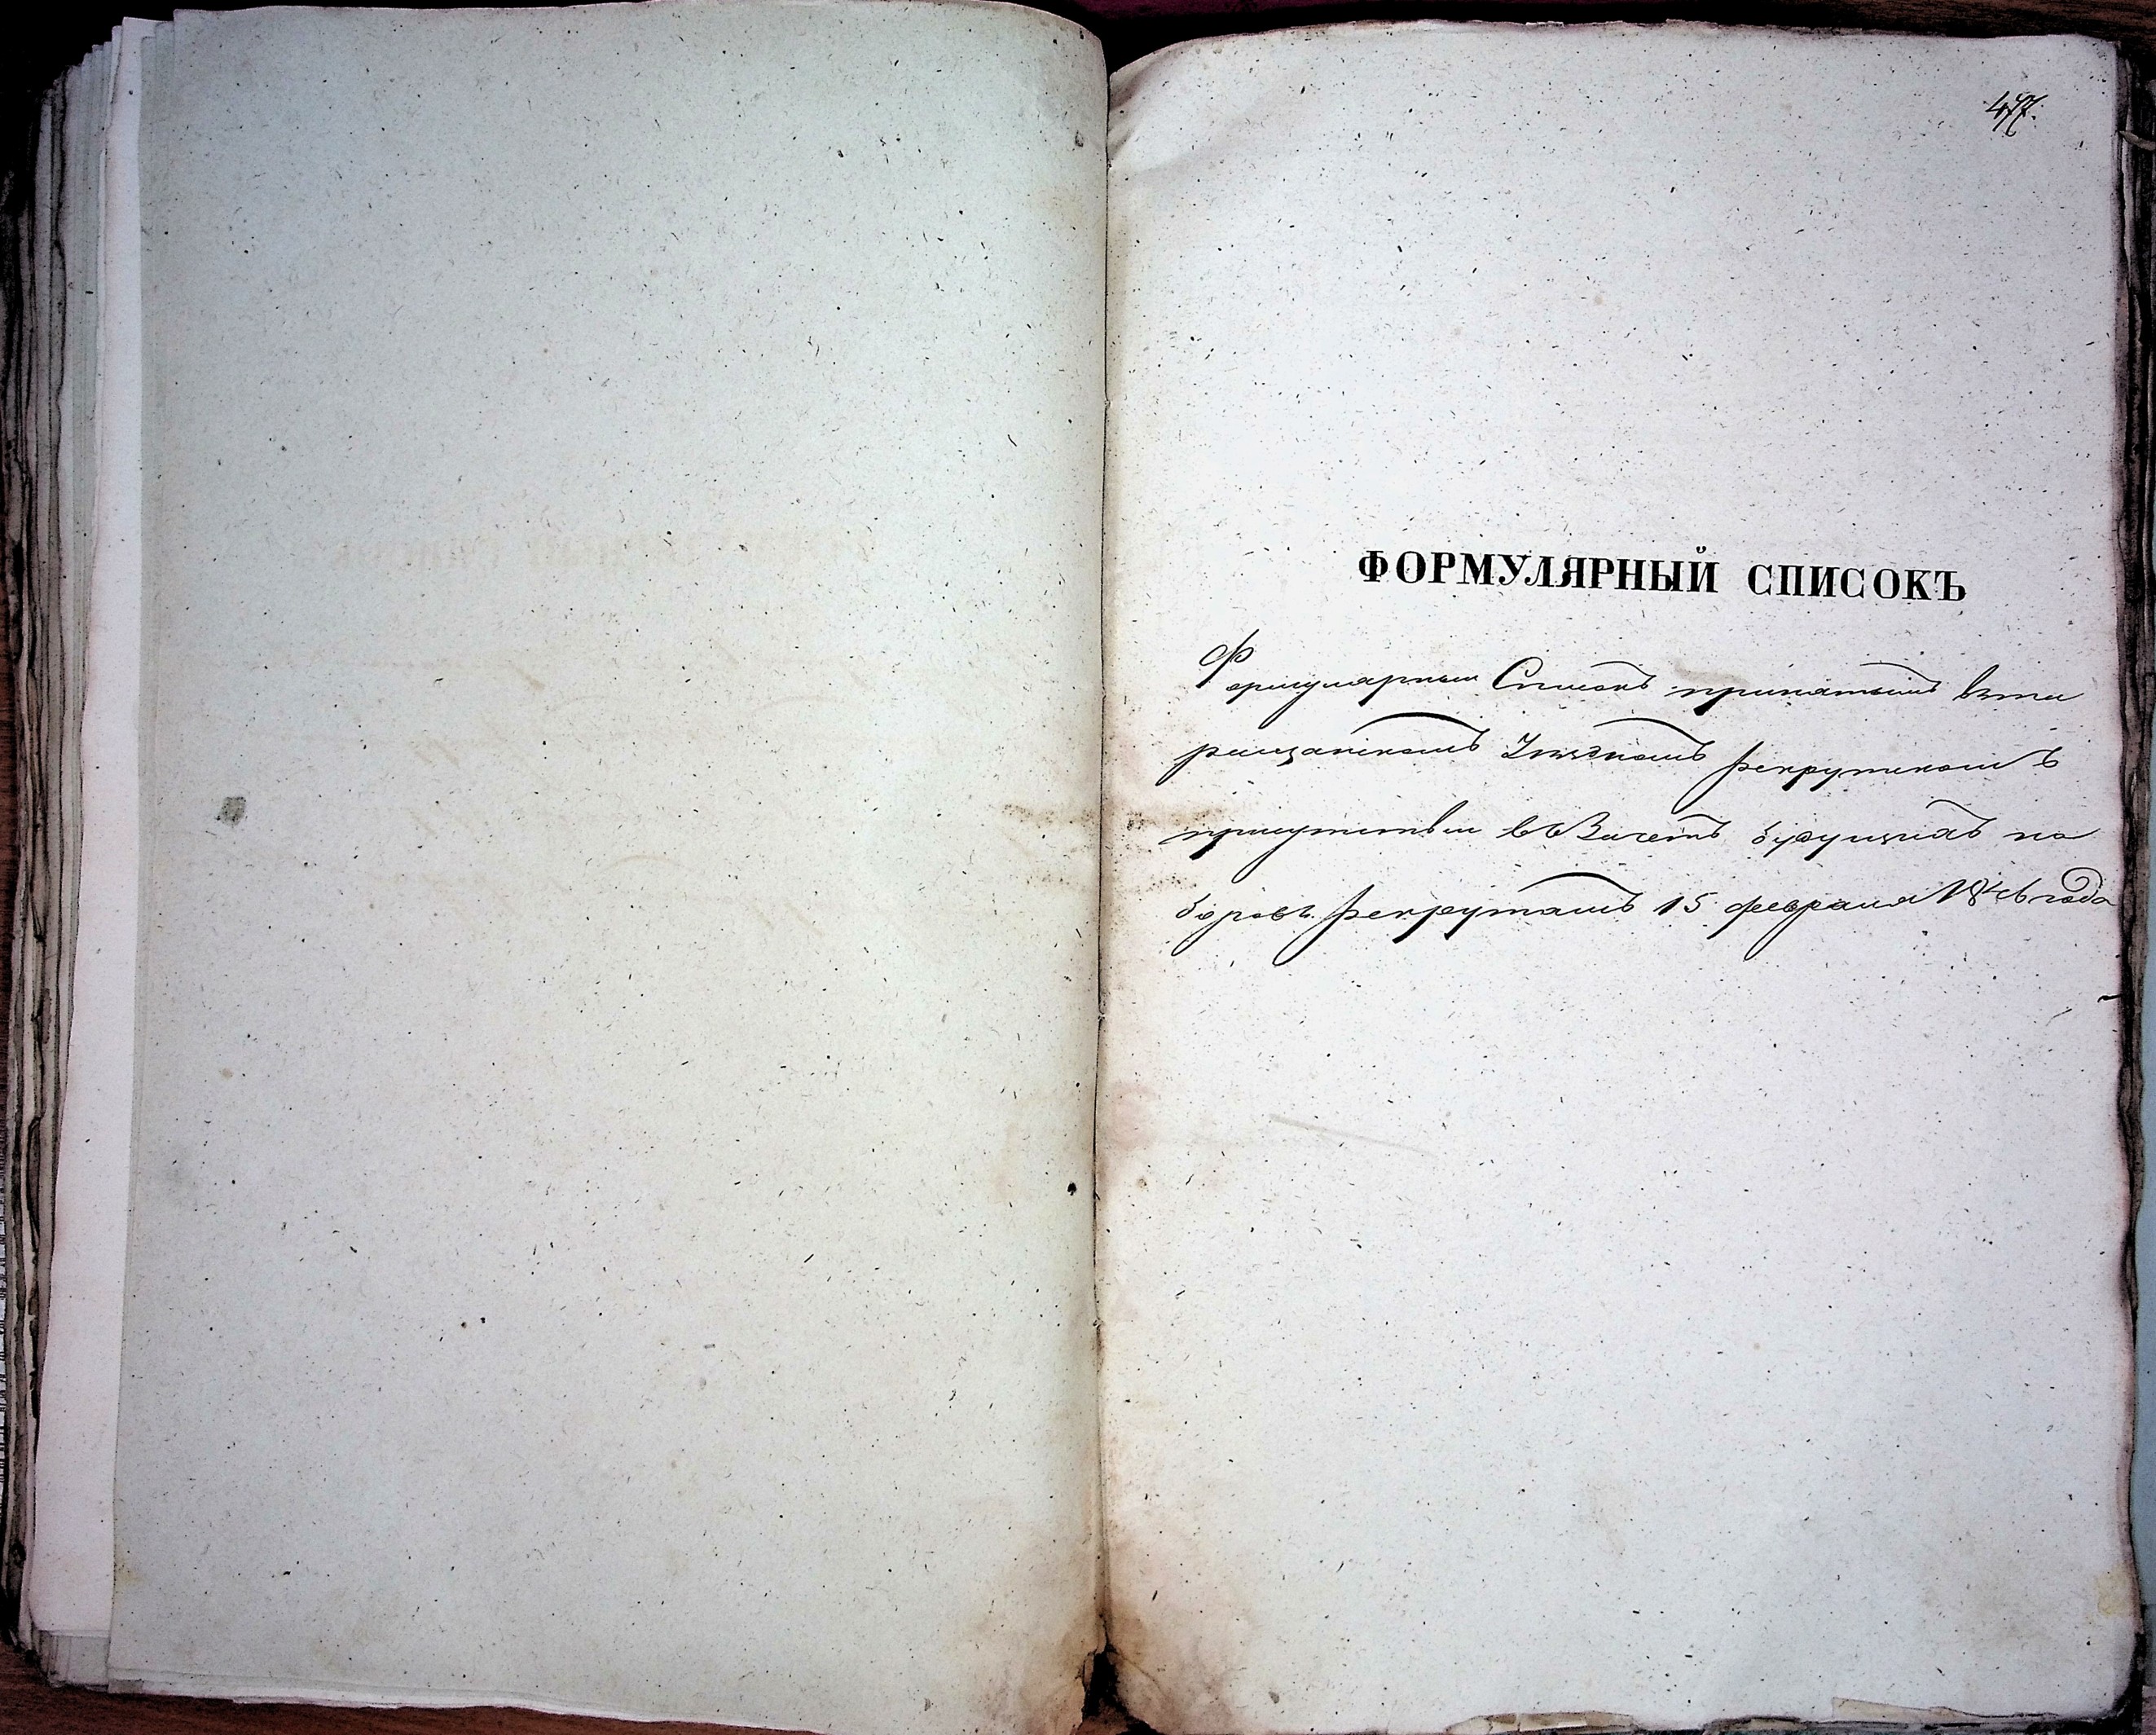 477.
ФОРМУЛЯРНЫЙ СПИСОКЪ
Формулярный Списокъ принятымъ вти
распольскомъ Уѣздномъ Рекрутскомъ
присутствіи въ Зачетъ будущихъ на
боровъ Рекрутамъ 15 февраля 1846 года